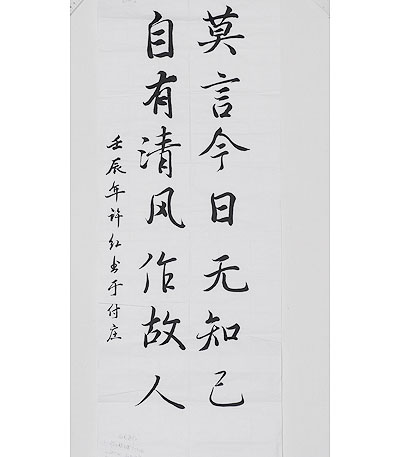 莫言今日无知己
自有清风作故人
壬辰年许红书于付庄